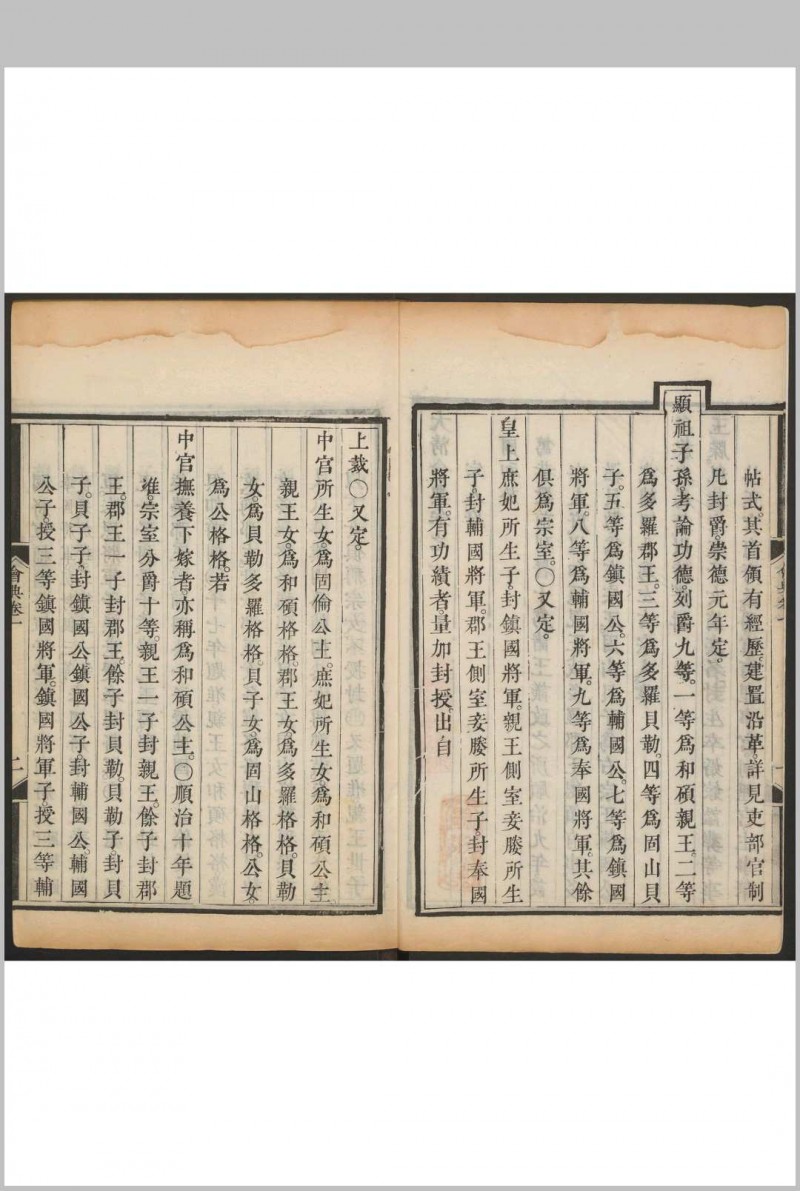 帖式。其首領有經歷。建置沿革。詳見吏部官制
凡封爵。崇德元年定。
顯祖子孫。考論功德。列爵九等。一等爲和碩親王。二等
爲多羅郡王。三等爲多羅貝勒。四等爲固山貝
子。五等爲鎮國公。六等爲輔國公。七等爲鎮國
將軍。八等爲輔國將軍。九等爲奉國將軍。其餘
俱爲宗室。○又定。
皇上庶妃所生子。封鎮國將軍。親王側室妾媵所生
子。封輔國將軍。郡王側室妾媵所生子。封奉國
將軍。有功績者。量加封授。出自
上裁○又定。
中宮所生女。爲固倫公主。庶妃所生女。爲和碩公主
親王女。爲和碩格格。郡王女。爲多羅格格。貝勒
女。爲貝勒多羅格格。貝子女。爲固山格格。公女。
爲公格格。若
中宮撫養下嫁者。亦稱爲和碩公主。○順治十年題
准。宗室分爵十等。親王一子封親王。餘子封郡
王。郡王一子封郡王。餘子封貝勒。貝勒子封貝
子。貝子子。封鎮國公。鎮國公子。封輔國公。輔國
公子。授三等鎮國將軍。鎮國將軍子。授三等輔
會典卷一
二